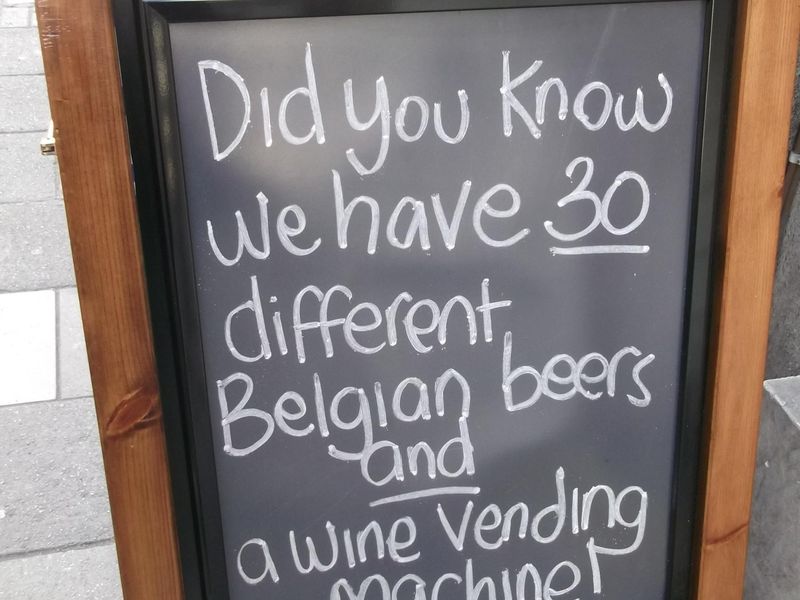 Did you know
we have 30
different
Belgian beers
and
a wine vending
machine!